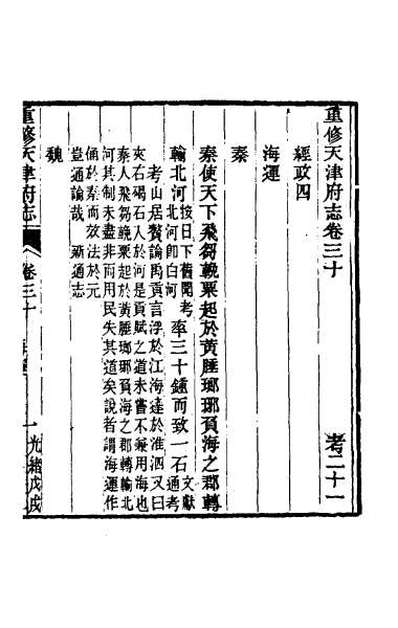 重修天津府志卷三十 考二十一
經政四
海運
秦
秦使天下飛芻輓粟起於黃腄瑯琊負海之郡轉
輸北河 按日下舊聞考
北河卽白河
率三十鍾而致一石 文獻
通考
考山居贅論禹貢言浮於江海達於淮泗又曰
夾右碣石入於河是貢賦之道未嘗不兼用海也
秦人飛芻輓粟起於黃腄瑯琊負海之郡轉輸北
河其制未盡非而用民失其道矣說者謂海運作
俑於秦而效法於元
豈通論哉 新通志
魏
重修天津府志 卷三十 一 光緒戊戌